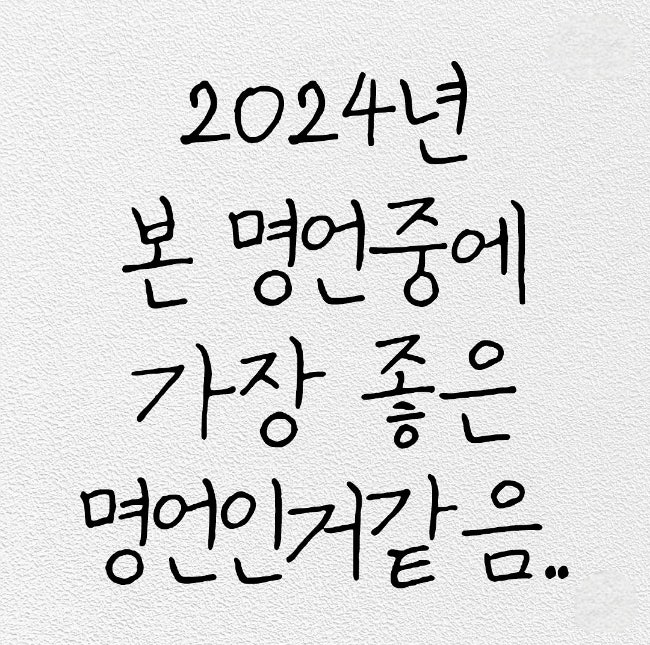 2024년
본 명언중에
가장 좋은
명언인거같음..